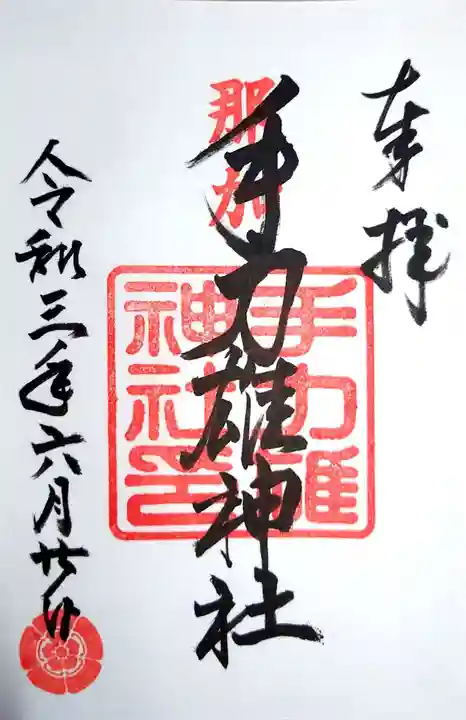 奉拝
那加
手力雄神社
手力雄
神社印
令和三年六月廿日